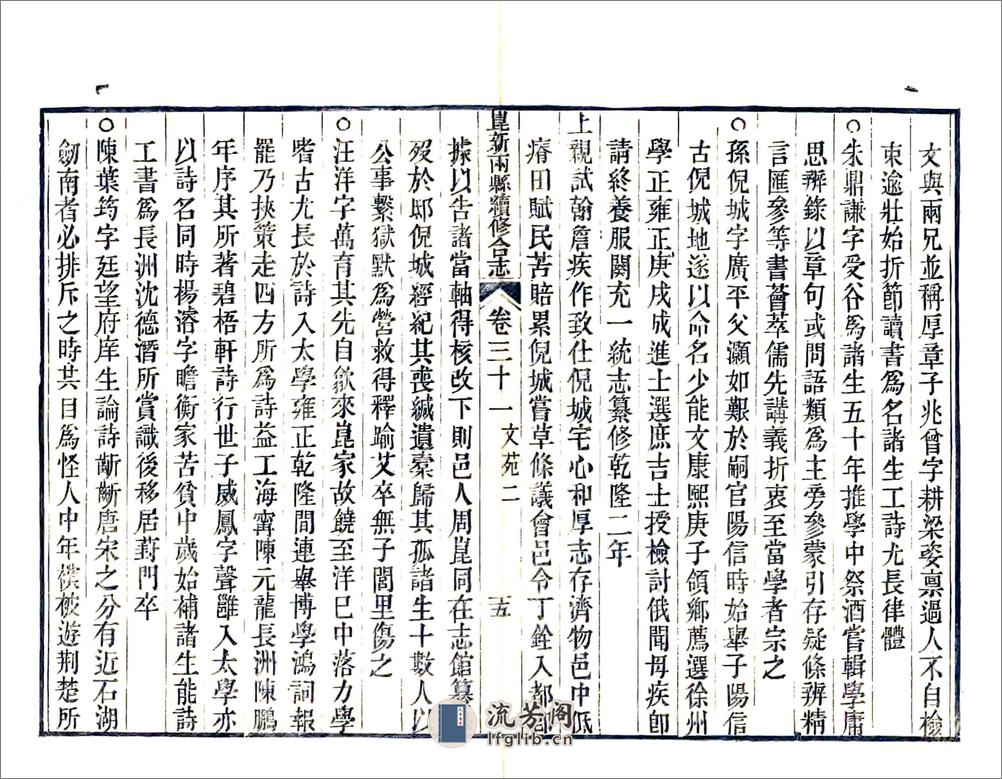 文與兩兄並稱厚章子兆曾字耕梁姿稟過人不自檢
束逾壯始折節讀書爲名諸生工詩尤長律體
○朱鼎謙字受谷爲諸生五十年推學中祭酒嘗輯學庸
思辨錄以章句或問語類爲主旁參蒙引存疑條辨精
言匯參等書薈萃儒先講義折衷至當學者宗之
○孫倪城字廣平父灝如艱於嗣官陽信時始舉子陽信
古倪城地遂以命名少能文康熙庚子領鄉薦選徐州
學正雍正庚戌成進士選庶吉士授檢討俄聞母疾卽
請終養服闋充一統志纂修乾隆二年
上親試翰詹疾作致仕倪城宅心和厚志存濟物邑中低
瘠田賦民苦賠累倪城嘗草條議會邑令丁銓入都
崑新兩縣續修合志 卷三十一 文苑二 五
據以告諸當軸得核改下則邑人周崑同在志館纂
歿於邸倪城經紀其喪緘遺橐歸其孤諸生十數人以
公事繫獄默爲營救得釋踰艾卒無子閭里傷之
○汪洋字萬育其先自歙來崑家故饒至洋已中落力學
嗜古尤長於詩入太學雍正乾隆間連舉博學鴻詞報
罷乃挾策走四方所爲詩益工海寧陳元龍長洲陳鵬
年序其所著碧梧軒詩行世子威鳳字聲雝入太學亦
以詩名同時楊濬字瞻衡家苦貧中歲始補諸生能詩
工書爲長洲沈德潛所賞識後移居葑門卒
○陳葉筠字廷望府庠生論詩齗齗唐宋之分有近石湖
劒南者必排斥之時共目爲怪人中年襆被遊荆楚所
流芳阁
lfglib.cn